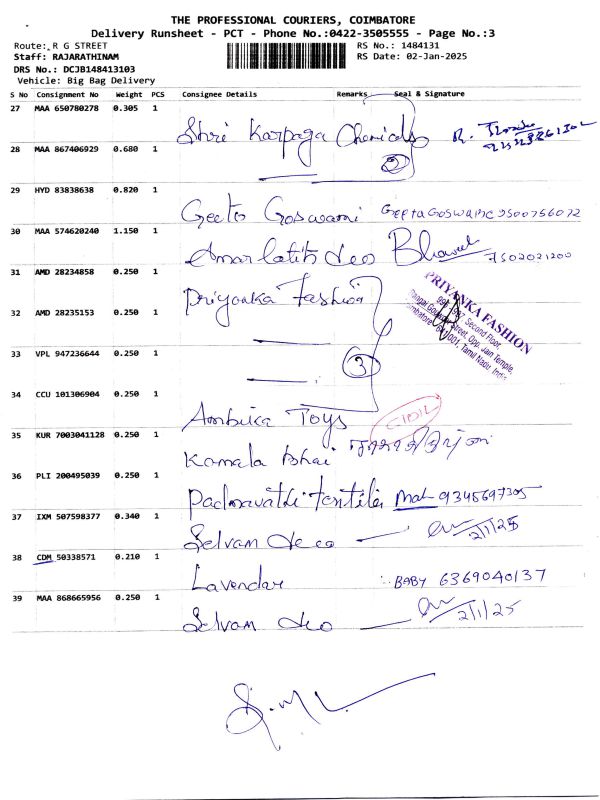 THE PROFESSIONAL COURIERS, COIMBATORE
Delivery Runsheet - PCT - Phone No.:0422-3505555 - Page No.:3
Route: R G STREET RS No.: 1484131
Staff: RAJARATHINAM RS Date: 02-Jan-2025
DRS No.: DCJB148413103
Vehicle: Big Bag Delivery
S No Consignment No Weight PCS Consignee Details Remarks Seal & Signature
27 MAA 650780278 0.305 1
Shri Karpaga Chemicals R.
28 MAA 867406929 0.680 1
2
29 HYD 83838638 0.820 1
Geeta Goswami GEETA GOSWAMI 9500756072
30 MAA 574620240 1.150 1
Amarlatib deo Bhawul 7502021200
31 AMD 28234858 0.250 1
Priyanka Fashion
PRIYANKA FASHION
Second Floor,
Street, Opp. Jain Temple,
Coimbatore - 641001, Tamil Nadu, India
32 AMD 28235153 0.250 1
33 VPL 947236644 0.250 1
3
34 CCU 101306904 0.250 1
Ambika Toys
35 KUR 7003041128 0.250 1
Kamala bhai
36 PLI 200495039 0.250 1
Padmavathi textiles 9345697305
37 IXM 507598377 0.340 1
Selvam deco 2/1/25
38 CDM 50338571 0.210 1
Lavendar BABY 6369040137
39 MAA 868665956 0.250 1
Selvam deo 2/1/25